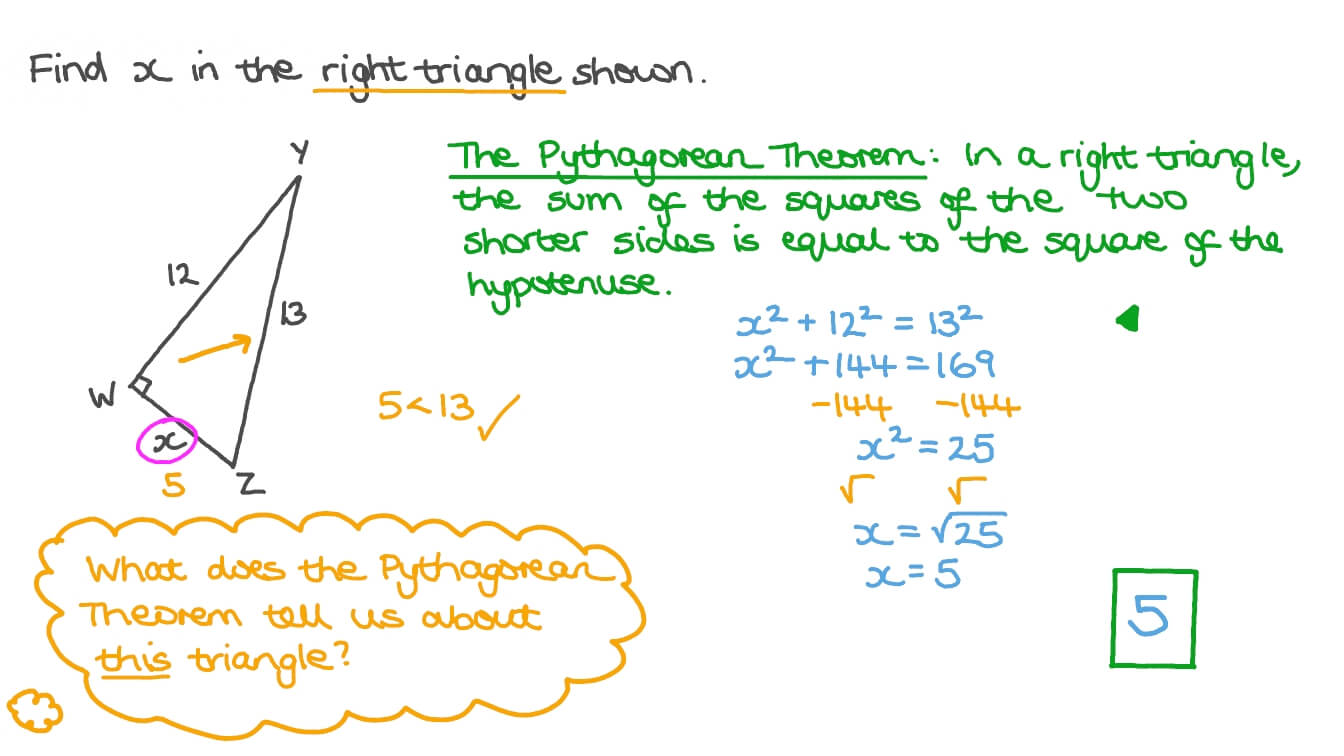 Find x in the right triangle shown.
Y
The Pythagorean Theorem: In a right triangle,
the sum of the squares of the two
shorter sides is equal to the square of the
hypotenuse.
12
13
W
x
5
Z
5<13 ✓
x² + 12² = 13²
x² + 144 = 169
-144 -144
x² = 25
√ √
x = √25
x = 5
5
What does the Pythagorean
Theorem tell us about
this triangle?